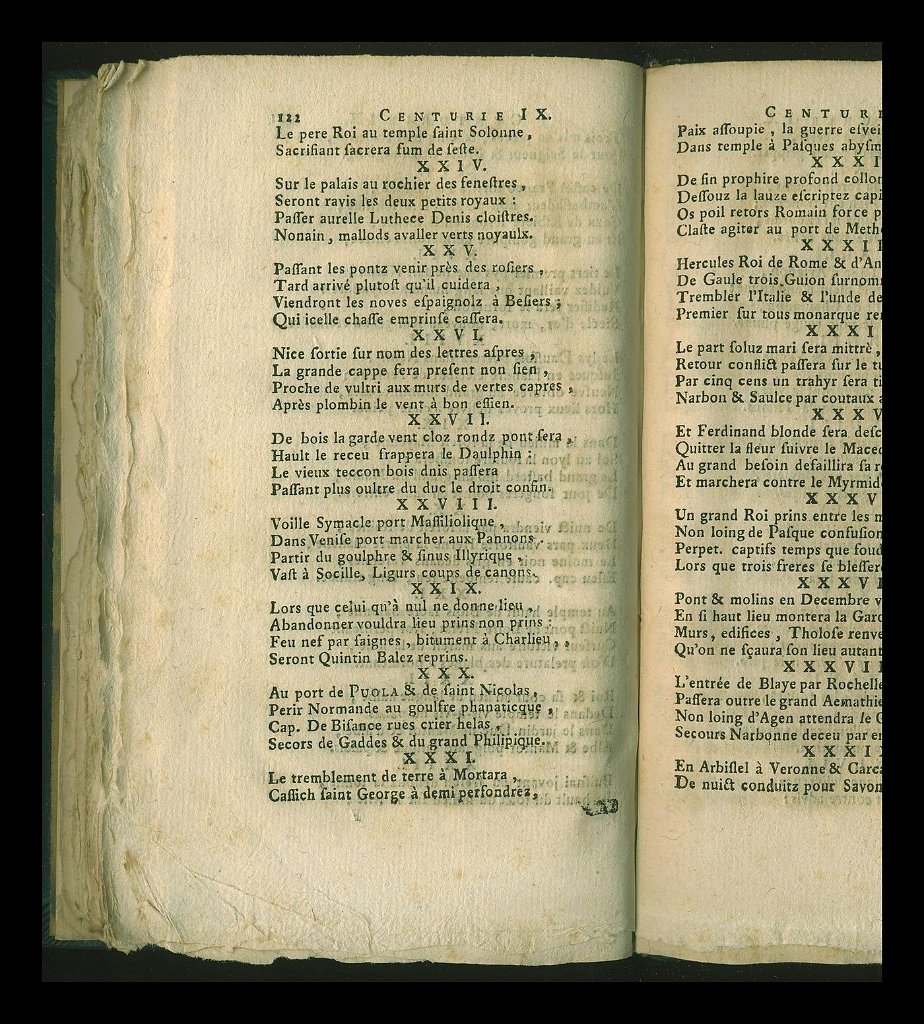 122 CENTURIE IX.
Le pere Roi au temple ſaint Solonne,
Sacrifiant ſacrera fum de feſte.
XXIV.
Sur le palais au rochier des feneſtres,
Seront ravis les deux petits royaux :
Paſſer aurelle Luthece Denis cloiſtres.
Nonain, mallods avaller verts noyaulx.
XXV.
Paſſant les pontz venir près des roſiers,
Tard arrivé plutoſt qu'il cuidera,
Viendront les noves eſpaignolz à Beſiers ;
Qui icelle chaſſe emprinſe caſſera.
XXVI.
Nice ſortie ſur nom des lettres aſpres,
La grande cappe fera preſent non ſien,
Proche de vultri aux murs de vertes capres,
Après plombin le vent à bon eſſien.
XXVII.
De bois la garde vent cloz rondz pont ſera,
Hault le receu frappera le Daulphin :
Le vieux teccon bois dnis paſſera
Paſſant plus oultre du duc le droit confin.
XXVIII.
Voille Symacle port Maſſiliolique,
Dans Veniſe port marcher aux Pannons.
Partir du goulphre & ſinus Illyrique,
Vaſt à Socille, Ligurs coups de canons.
XXIX.
Lors que celui qu'à nul ne donne lieu,
Abandonner vouldra lieu prins non prins :
Feu nef par ſaignes, bitument à Charlieu,,
Seront Quintin Balez reprins.
XXX.
Au port de PUOLA & de ſaint Nicolas,
Perir Normande au goulfre phanaticque,
Cap. De Biſance rues crier helas,
Secors de Gaddes & du grand Philipique.
XXXI.
Le tremblement de terre à Mortara,
Caſſich ſaint George à demi perfondrez,
CENTURI
Paix aſſoupie, la guerre eſvei
Dans temple à Paſques abyſm
XXXI
De fin prophire profond collon
Deſſouz la lauze eſcriptez capi
Os poil retors Romain force p
Claſte agiter au port de Meth
XXXII
Hercules Roi de Rome & d'An
De Gaule trois Guion ſurnom
Trembler l'Italie & l'unde de
Premier ſur tous monarque re
XXXI
Le part ſoluz mari ſera mittrè,
Retour conflict paſſera ſur le tu
Par cinq cens un trahyr ſera ti
Narbon & Saulce par coutaux a
XXXV
Et Ferdinand blonde ſera deſc
Quitter la fleur ſuivre le Mace
Au grand beſoin defaillira ſa r
Et marchera contre le Myrmid
XXXV
Un grand Roi prins entre les m
Non loing de Paſque confuſion
Perpet. captifs temps que foud
Lors que trois freres ſe bleſſer
XXXVI
Pont & molins en Decembre v
En ſi haut lieu montera la Garo
Murs, edifices, Tholoſe renve
Qu'on ne ſçaura ſon lieu autant
XXXVII
L'entrée de Blaye par Rochelle
Paſſera outre le grand Aemathie
Non loing d'Agen attendra le G
Secours Narbonne deceu par en
XXXIX
En Arbiſlel à Veronne & Carca
De nuict conduitz pour Savon